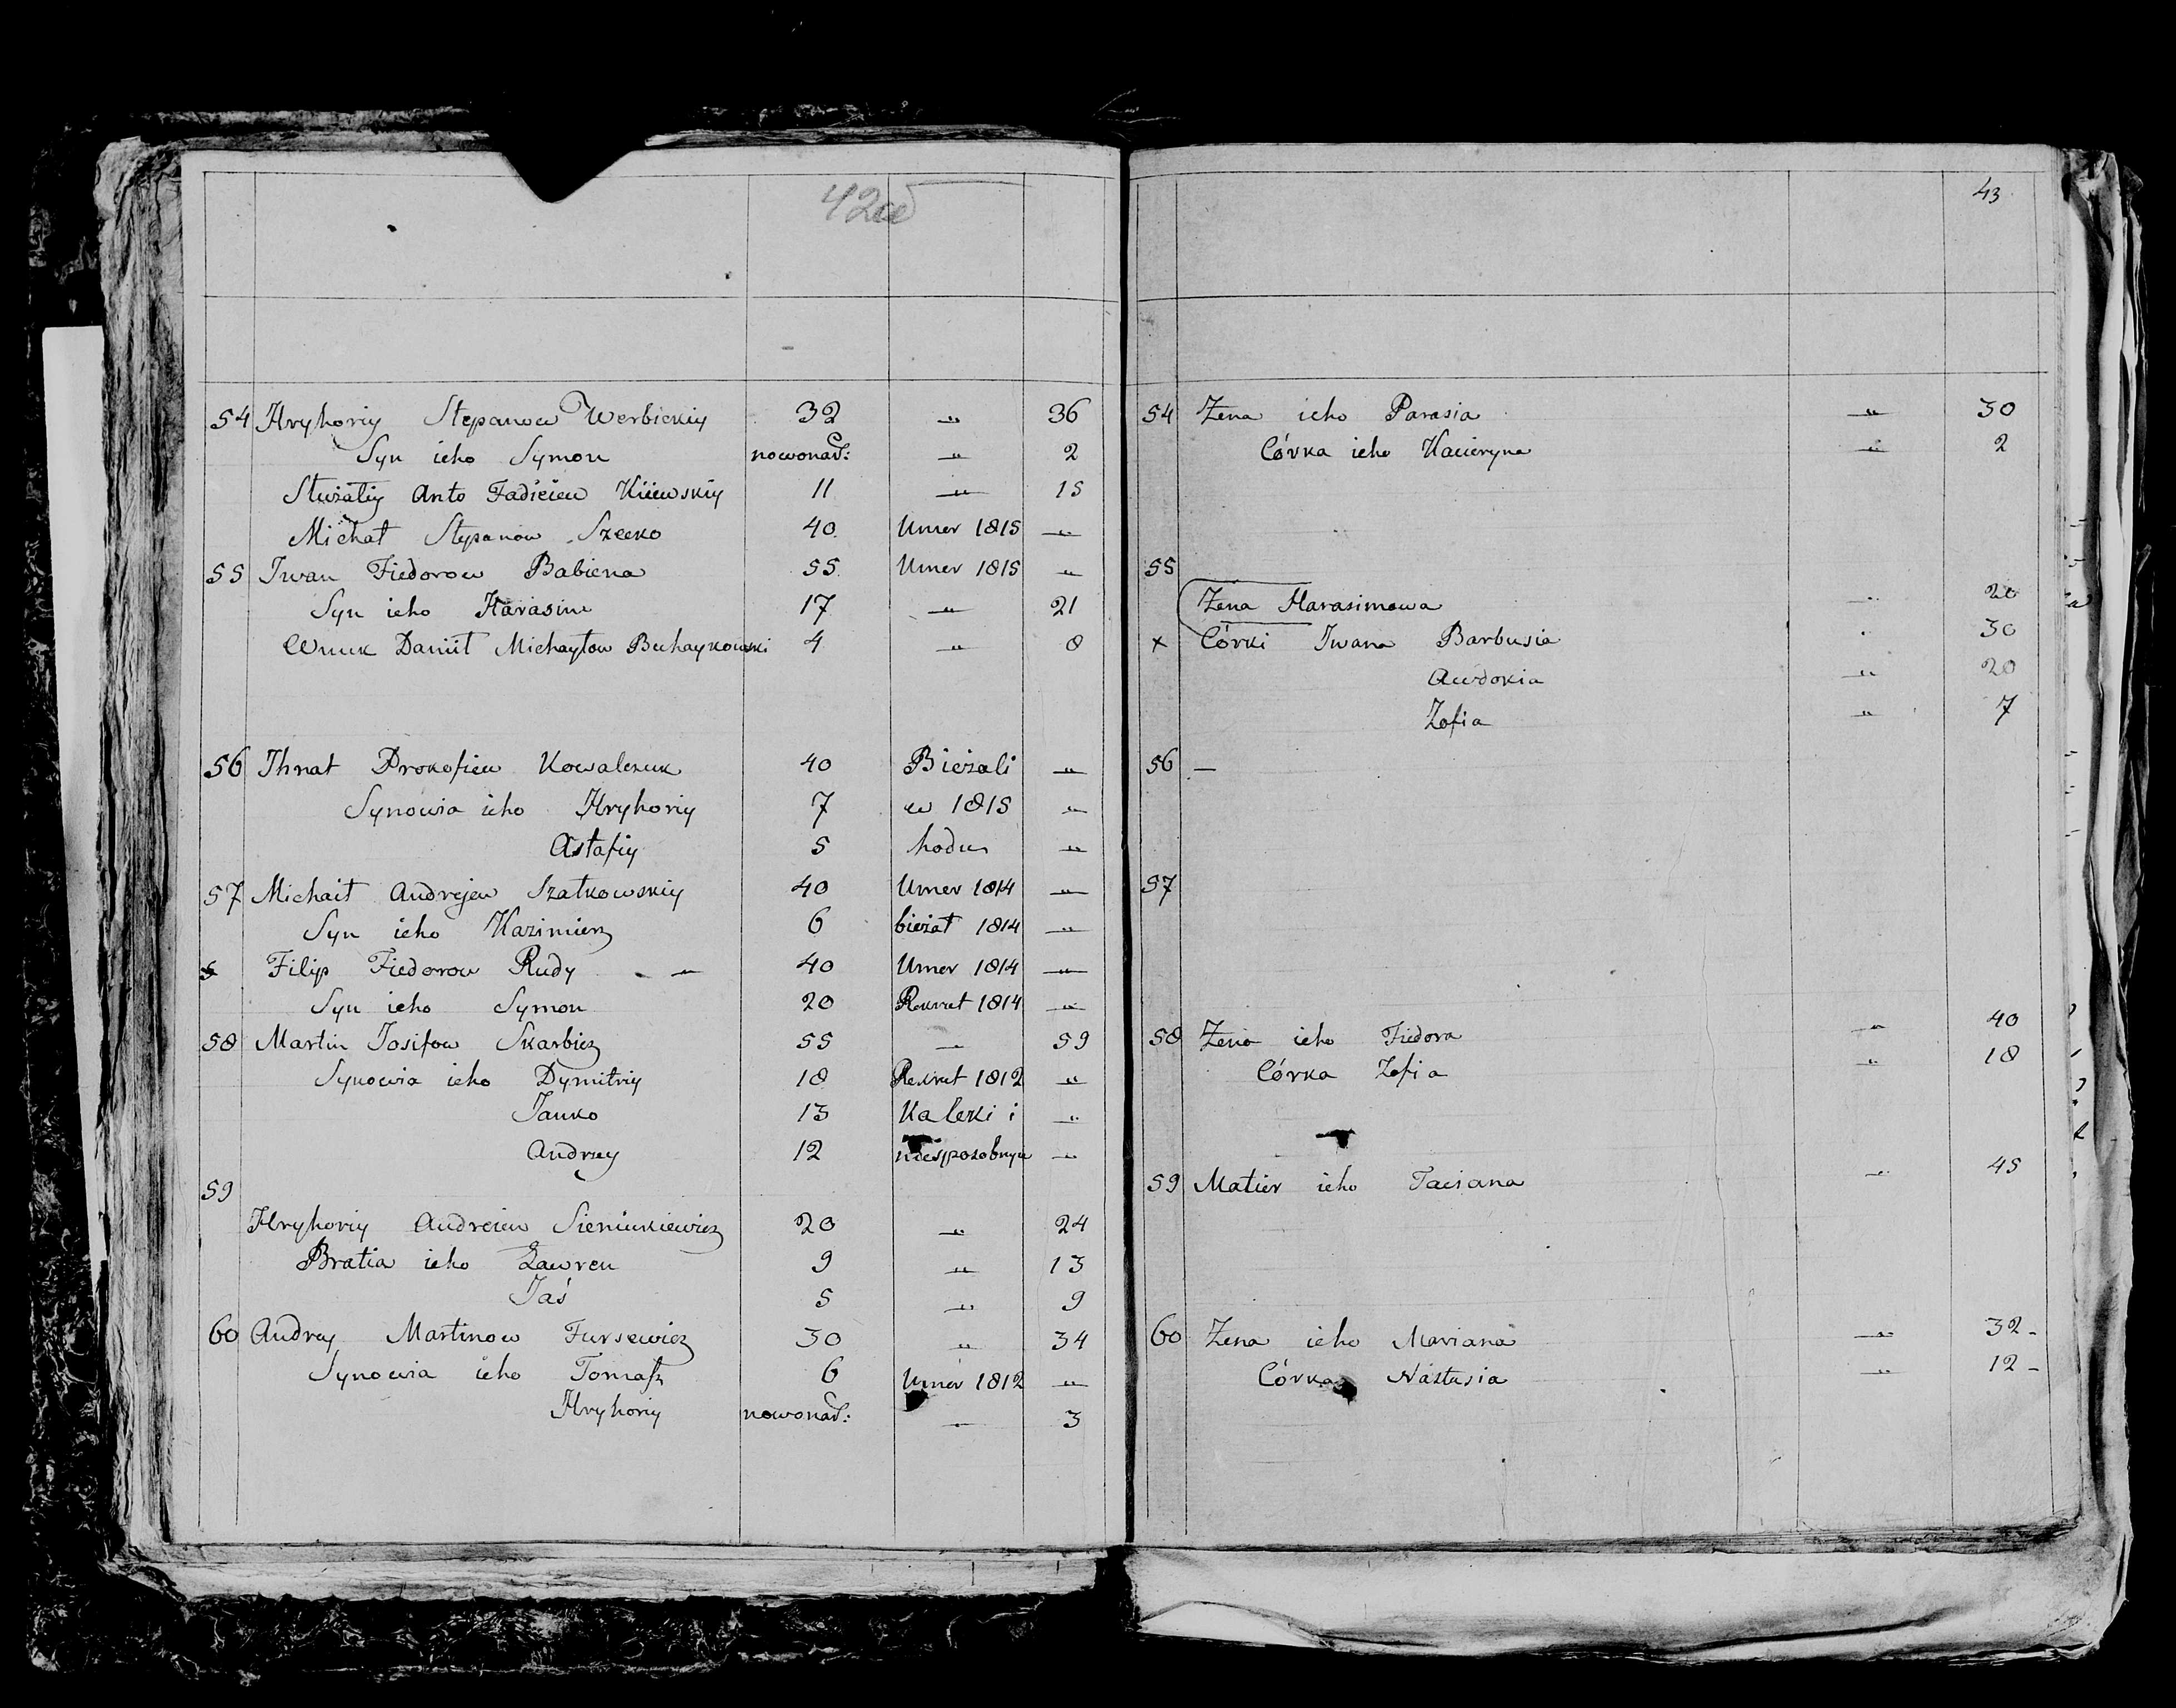 42об
54 Hryhoriy Stepanow Werbickiy 32 „ 36
Syn ieho Symon nowonar: „ 2
Służaliy Anto Fadieiew Kiiewskiy 11 „ 15
Michał Stepanow Szecko 40 Umer 1815 „
55 Iwan Fiedorow Babiena 55 Umer 1815 „
Syn ieho Harasim 17 „ 21
Wnuk Daniił Michayłow Buhaykowski 4 „ 8
56 Ihnat Prokofiew Kowalczuk 40 Bieżali „
Synowia ieho Hryhoriy 7 w 1815 „
Astafiy 5 hodu „
57 Michaił Andrejew Szatkowskiy 40 Umer 1814 „
Syn ieho Kazimierz 6 bieżał 1814 „
Filip Fiedorow Rudy 40 Umer 1814 „
Syn ieho Symon 20 Rekrut 1814 „
58 Martin Josifow Skarbicz 55 „ 59
Synowia ieho Dymitriy 18 Rekrut 1812 „
Janko 13 Kaleki i „
Andrzey 12 niesposobnyie „
59
Hryhoriy Andreiew Sieniukiewicz 20 „ 24
Bratia ieho Ławren 9 „ 13
Jaś 5 „ 9
60 Andrzy Martinow Fursewicz 30 „ 34
Synowia ieho Tomasz 6 Umer 1812 „
Hryhoriy nowonar: „ 3
43
54 Żena ieho Parasia „ 30
Córka ieho Kacieryna „ 2
55
Żena Harasimowa „ 20
x Córki Iwana Barbusia „ 30
Awdokia „ 20
Zofia „ 7
56 —
57
58 Żena ieho Fiedora „ 40
Córka Zofia „ 18
59 Matier ieho Taciana „ 45
60 Żena ieho Mariana „ 32 -
Córka Nastusia „ 12 -